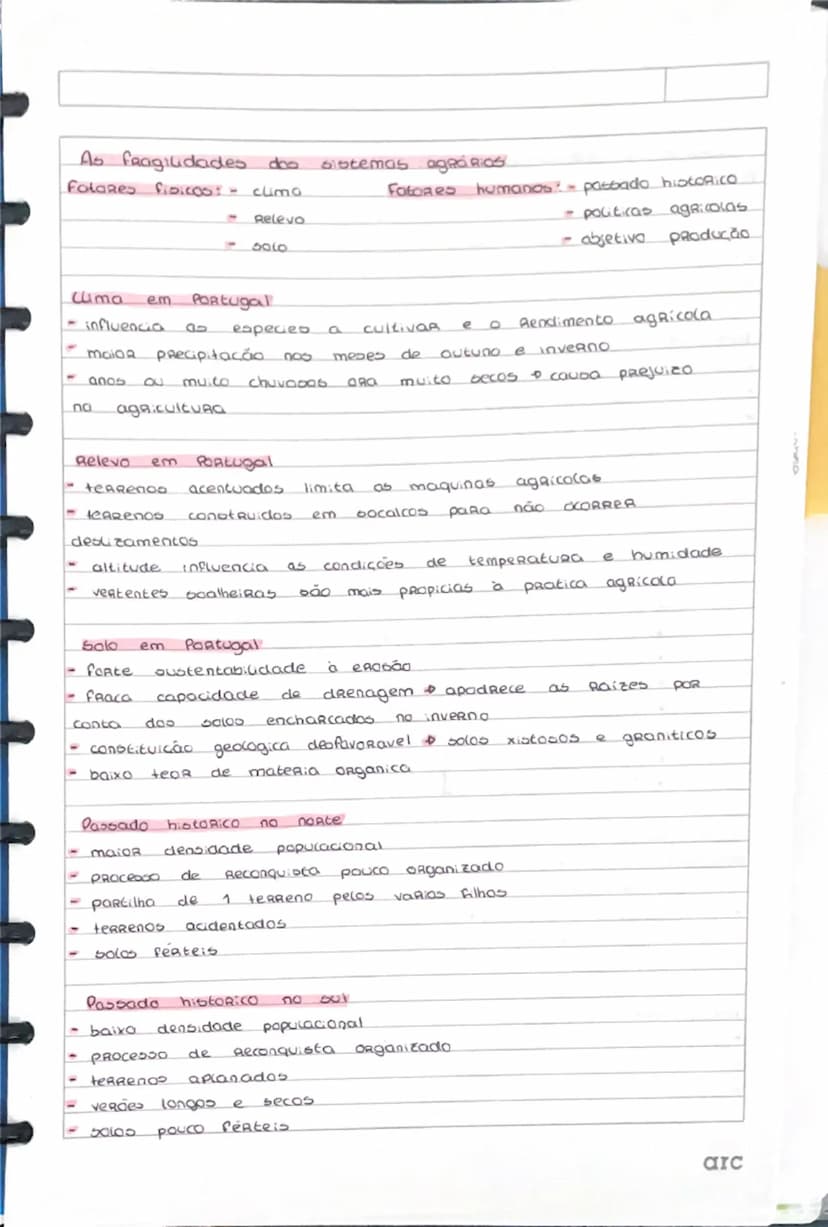 As fragilidades dos sistemas agrários
Fatores fisicos: - clima Fatores humanos: - passado historico
- Relevo - politicas agricolas
- solo - objetivo produção
Clima em Portugal
- influencia as especies a cultivar e o Rendimento agricola
- maior precipitação nos meses de outuno e inverno
- anos ou muito chuvosos ora muito secos → causa prejuizo
na agricultura
Relevo em Portugal
- terrenos acentuados limita as maquinas agricolas
- terrenos construidos em socalcos para não ocorrer
deslizamentos
- altitude influencia as condições de temperatura e humidade
- vertentes soalheiras são mais propicias à pratica agricola
Solo em Portugal
- forte sustentabilidade à erosão
- fraca capacidade de drenagem → apodrece as raizes por
conta dos solos encharcados no inverno
- constituição geologica desfavoravel → solos xistosos e graniticos
- baixo teor de materia organica
Passado historico no norte
- maior densidade populacional
- processo de reconquista pouco organizado
- partilha de 1 terreno pelos varios filhos
- terrenos acidentados
- solos férteis
Passado historico no sul
- baixa densidade populacional
- processo de reconquista organizado
- terrenos aplanados
- verões longos e secos
- solos pouco férteis
arc